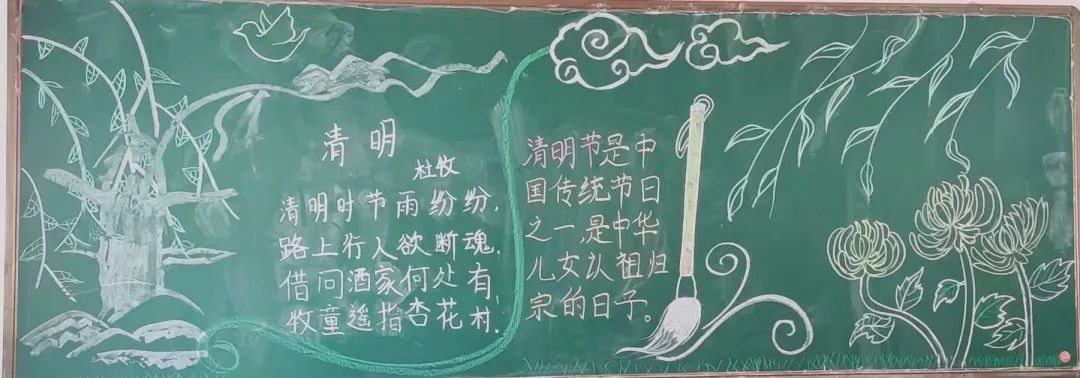 清明
杜牧
清明时节雨纷纷,
路上行人欲断魂.
借问酒家何处有,
牧童遥指杏花村.
清明节是中
国传统节日
之一,是中华
儿女认祖归
宗的日子。